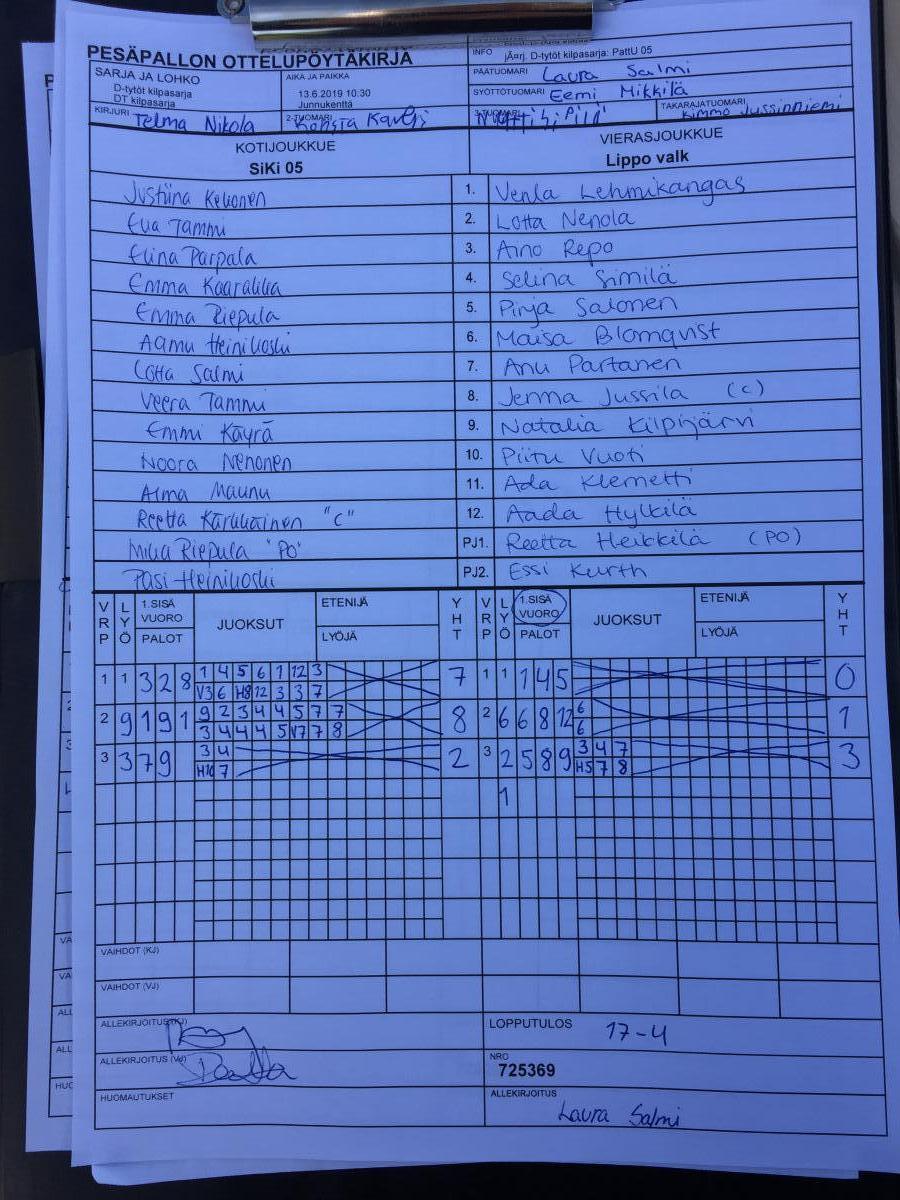 PESÄPALLON OTTELUPÖYTÄKIRJA
INFO jÃ¤rj. D-tytöt kilpasarja: PattU 05
SARJA JA LOHKO
D-tytöt kilpasarja
DT kilpasarja
AIKA JA PAIKKA
13.6.2019 10:30
Junnukenttä
PÄÄTUOMARI Laura Salmi
SYÖTTÖTUOMARI Eemi Mikkilä
KIRJURI Telma Nikola
2-TUOMARI Konsta
3-TUOMARI
TAKARAJATUOMARI Kimmo Jussinniemi
KOTIJOUKKUE
SiKi 05
VIERASJOUKKUE
Lippo valk
Justiina Keuonen 1. Venla Lehmikangas
Eva Tammi 2. Lotta Nenola
Elina Parpala 3. Aino Repo
Emma 4. Selina Similä
Emma Riepula 5. Pinja Salonen
Aamu Heinikoski 6. Maisa Blomqvist
Lotta Salmi 7. Anu Partanen
Veera Tammi 8. Jenna Jussila (c)
Emmi Käyrä 9. Natalia Kilpijärvi
Noora Nenonen 10. Piitu Vuoti
Alma Maunu 11. Ada Klemetti
Reetta Karukainen "C" 12. Aada Hylkilä
Milla Riepula "PO" PJ1. Reetta Heikkilä (PO)
Pasi Heinikoski PJ2. Essi Kurth
VRP LYÖ 1.SISÄ VUORO PALOT JUOKSUT ETENIJÄ LYÖJÄ YHT VRP LYÖ 1.SISÄ VUORO PALOT JUOKSUT ETENIJÄ LYÖJÄ YHT
1 1 3 2 8 1 4 5 6 1 12 3 7 1 1 1 4 5 0
V3 6 H8 12 3 3 7
2 9 1 9 1 9 2 3 4 4 5 7 7 8 2 6 6 8 12 6 1
3 4 4 4 5 V7 7 8 6
3 3 7 9 3 4 2 3 2 5 8 9 3 4 7 3
H10 7 H5 7 8
1
VAIHDOT (KJ)
VAIHDOT (VJ)
ALLEKIRJOITUS (KJ)
LOPPUTULOS 17-4
ALLEKIRJOITUS (VJ)
NRO
725369
HUOMAUTUKSET
ALLEKIRJOITUS
Laura Salmi